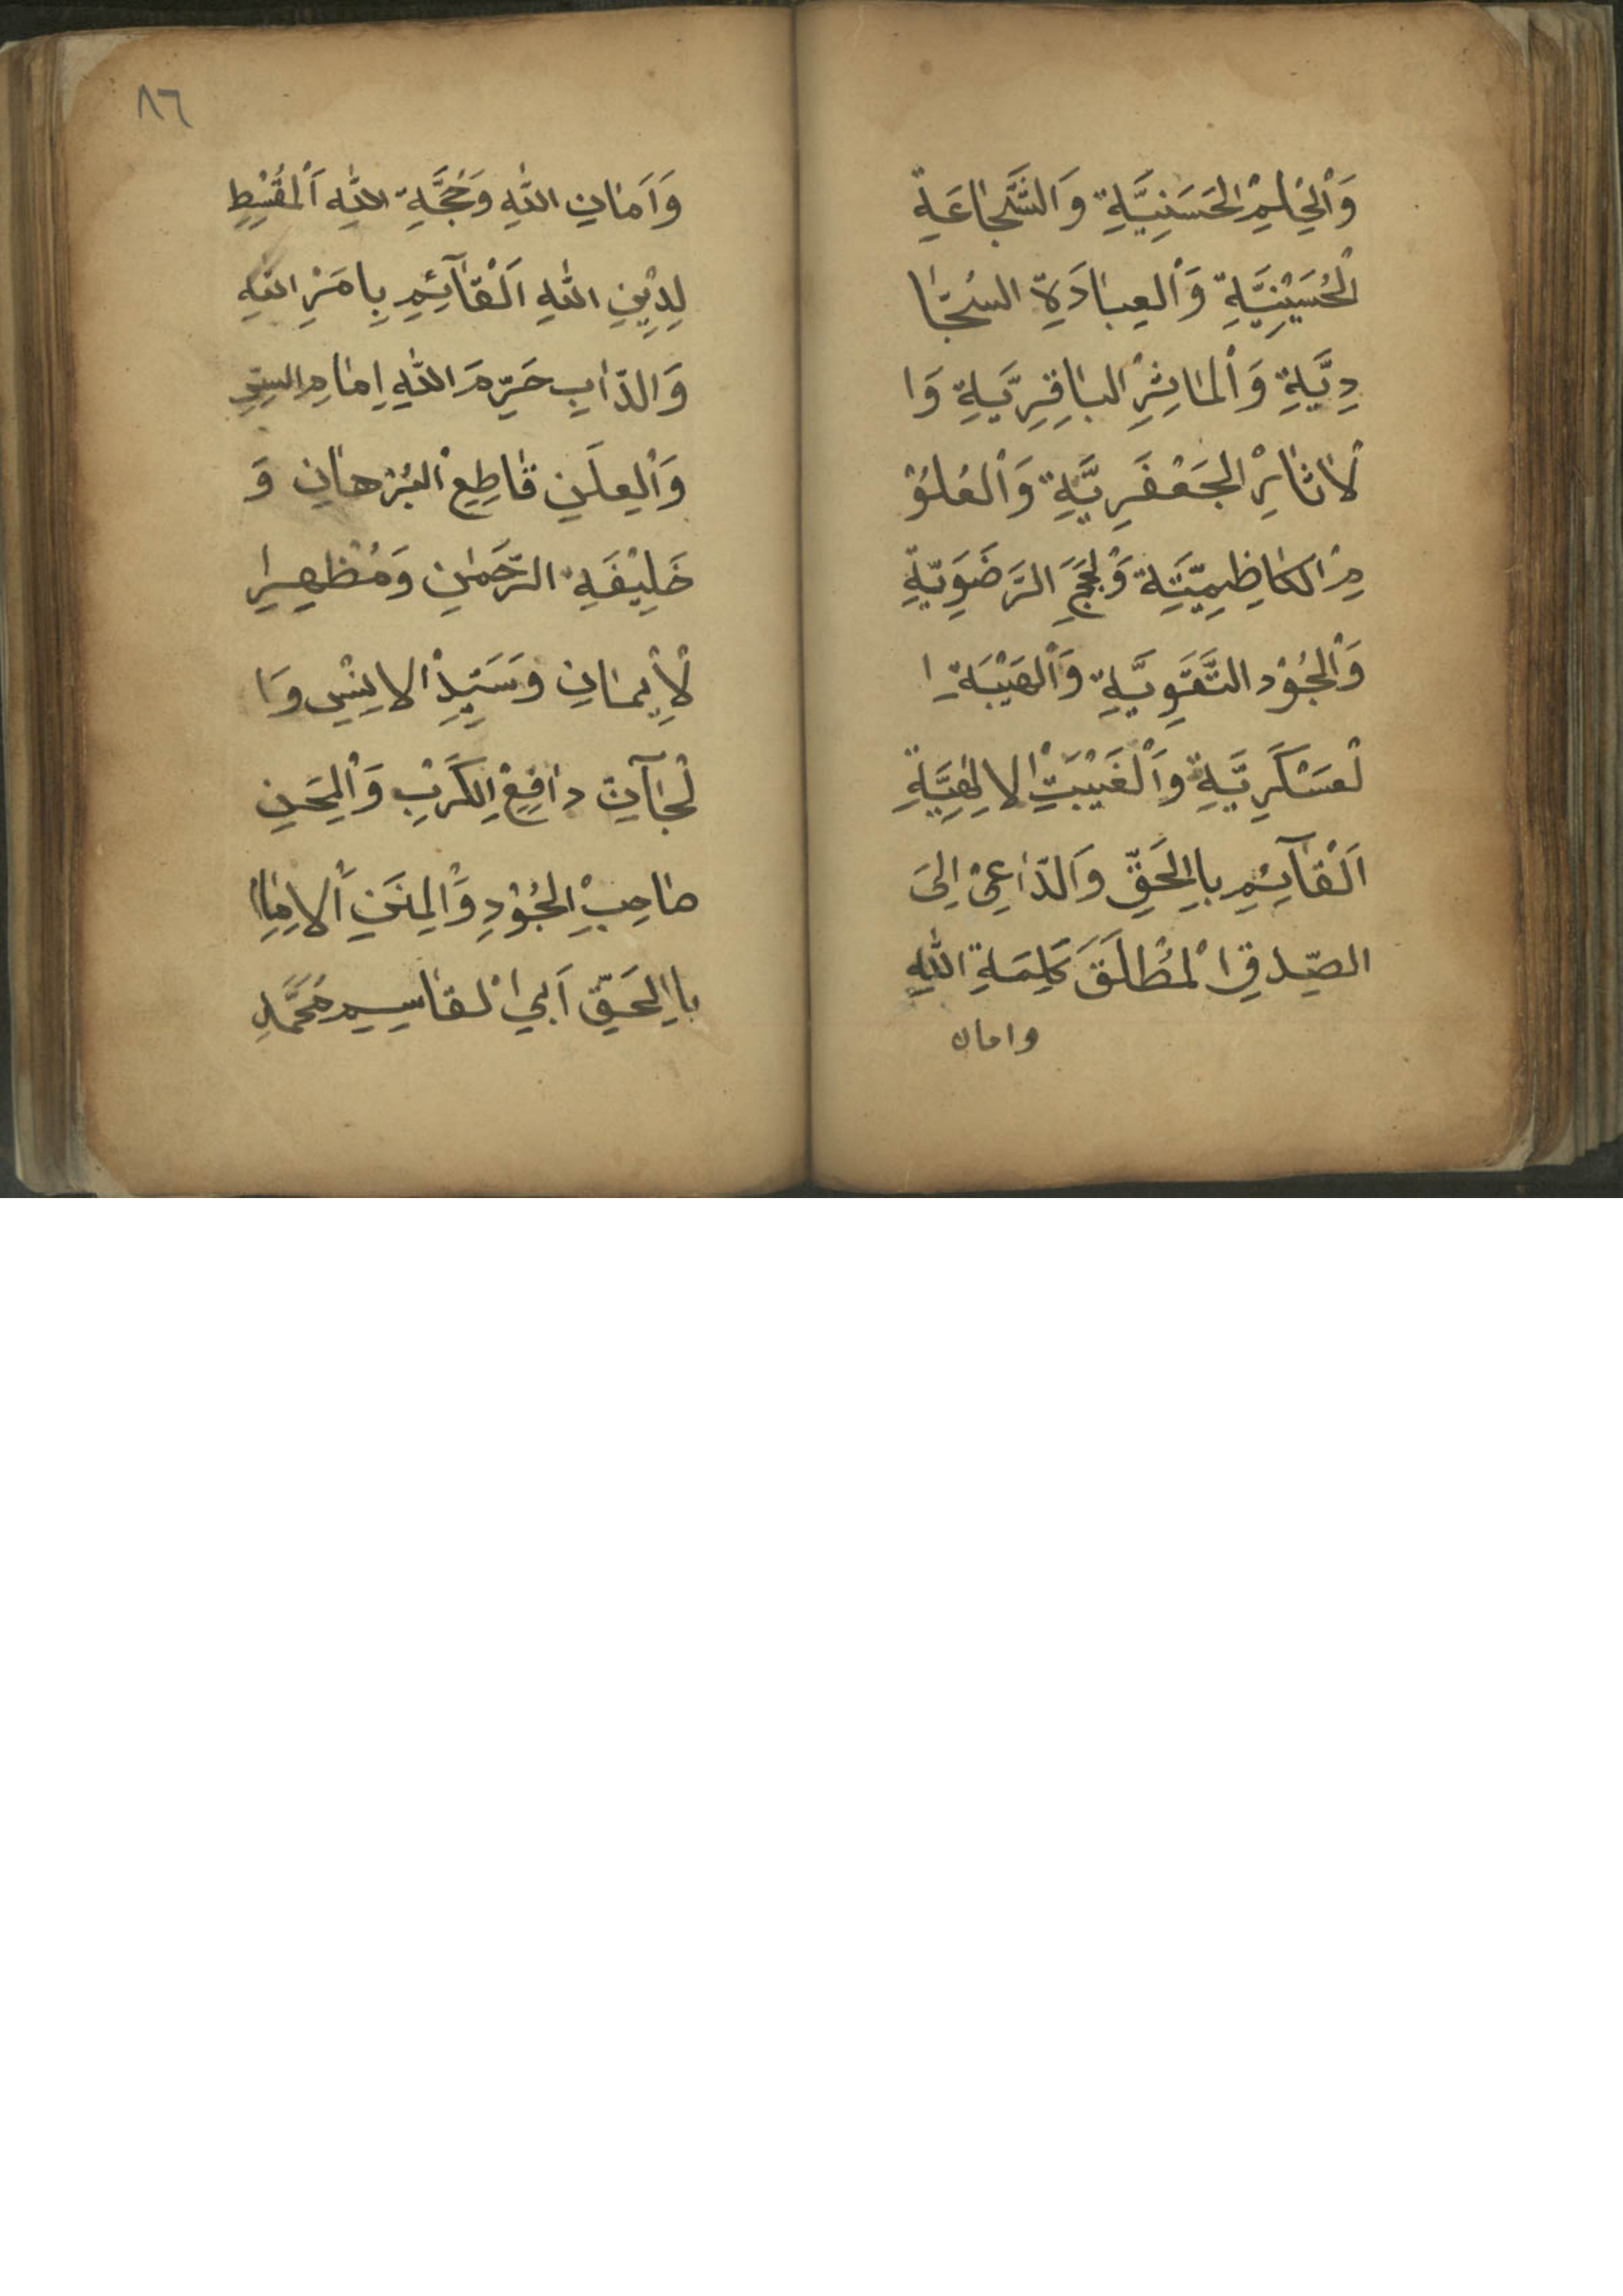 وَالْحِلْمِ الْحَسَنِيَّةِ وَالشَّجَاعَةِ
الْحُسَيْنِيَّةِ وَالْعِبَادَةِ السَّجَّا
دِيَّةِ وَالْمَاثِرِ الْبَاقِرِيَّةِ وَا
لْاثَارِ الْجَعْفَرِيَّةِ وَالْعُلُوْ
مِ الْكَاظِمِيَّةِ وَلْحُجَجِ الرَّضَوِيَّةِ
وَالْجُوْدِ التَّقَوِيَّةِ وَالْهَيْبَةِ ا
لْعَسْكَرِيَّةِ وَالْغَيْبَتِ الْالٰهِيَّةِ
اَلْقَآئِمِ بِالْحَقِّ وَالدَّاعِيْ اِلَى
الصِّدقِ الْمُطْلَقَ كَلِمَةِ اللهِ
وامان
٨٦
وَاَمَانِ اللهِ وَحُجَّةِ اللهِ اَلْمُقْسِطِ
لِدِيْنِ اللهِ اَلْقَآئِمِ بِامَرِ اللهِ
وَالذَّابِ حَرَّمَ اللهِ اِمَامِ السِّرِ
وَالْعِلَنِ قَاطِعِ الْبُرْهَانِ وَ
خَلِيْفَةِ الرَّحْمٰنِ وَمُظْهِرِا
لْاِيْمَانِ وَسَيِّدِ الْاِنْسِ وَا
لْجَآنِّ دَافِعِ الْكَرْبِ وَالْمِحَنِ
صَاحِبِ الْجُوْدِ وَالْمِنَنِ اَلْاِمَامِ
بِاالْحَقِّ اَبِي الْقَاسِمِ مُحَمَّدِ